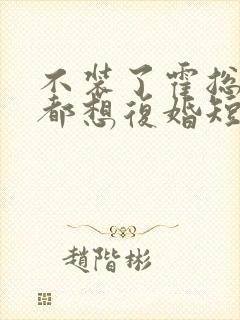 不装了霍总
都想復婚短
趙階彬